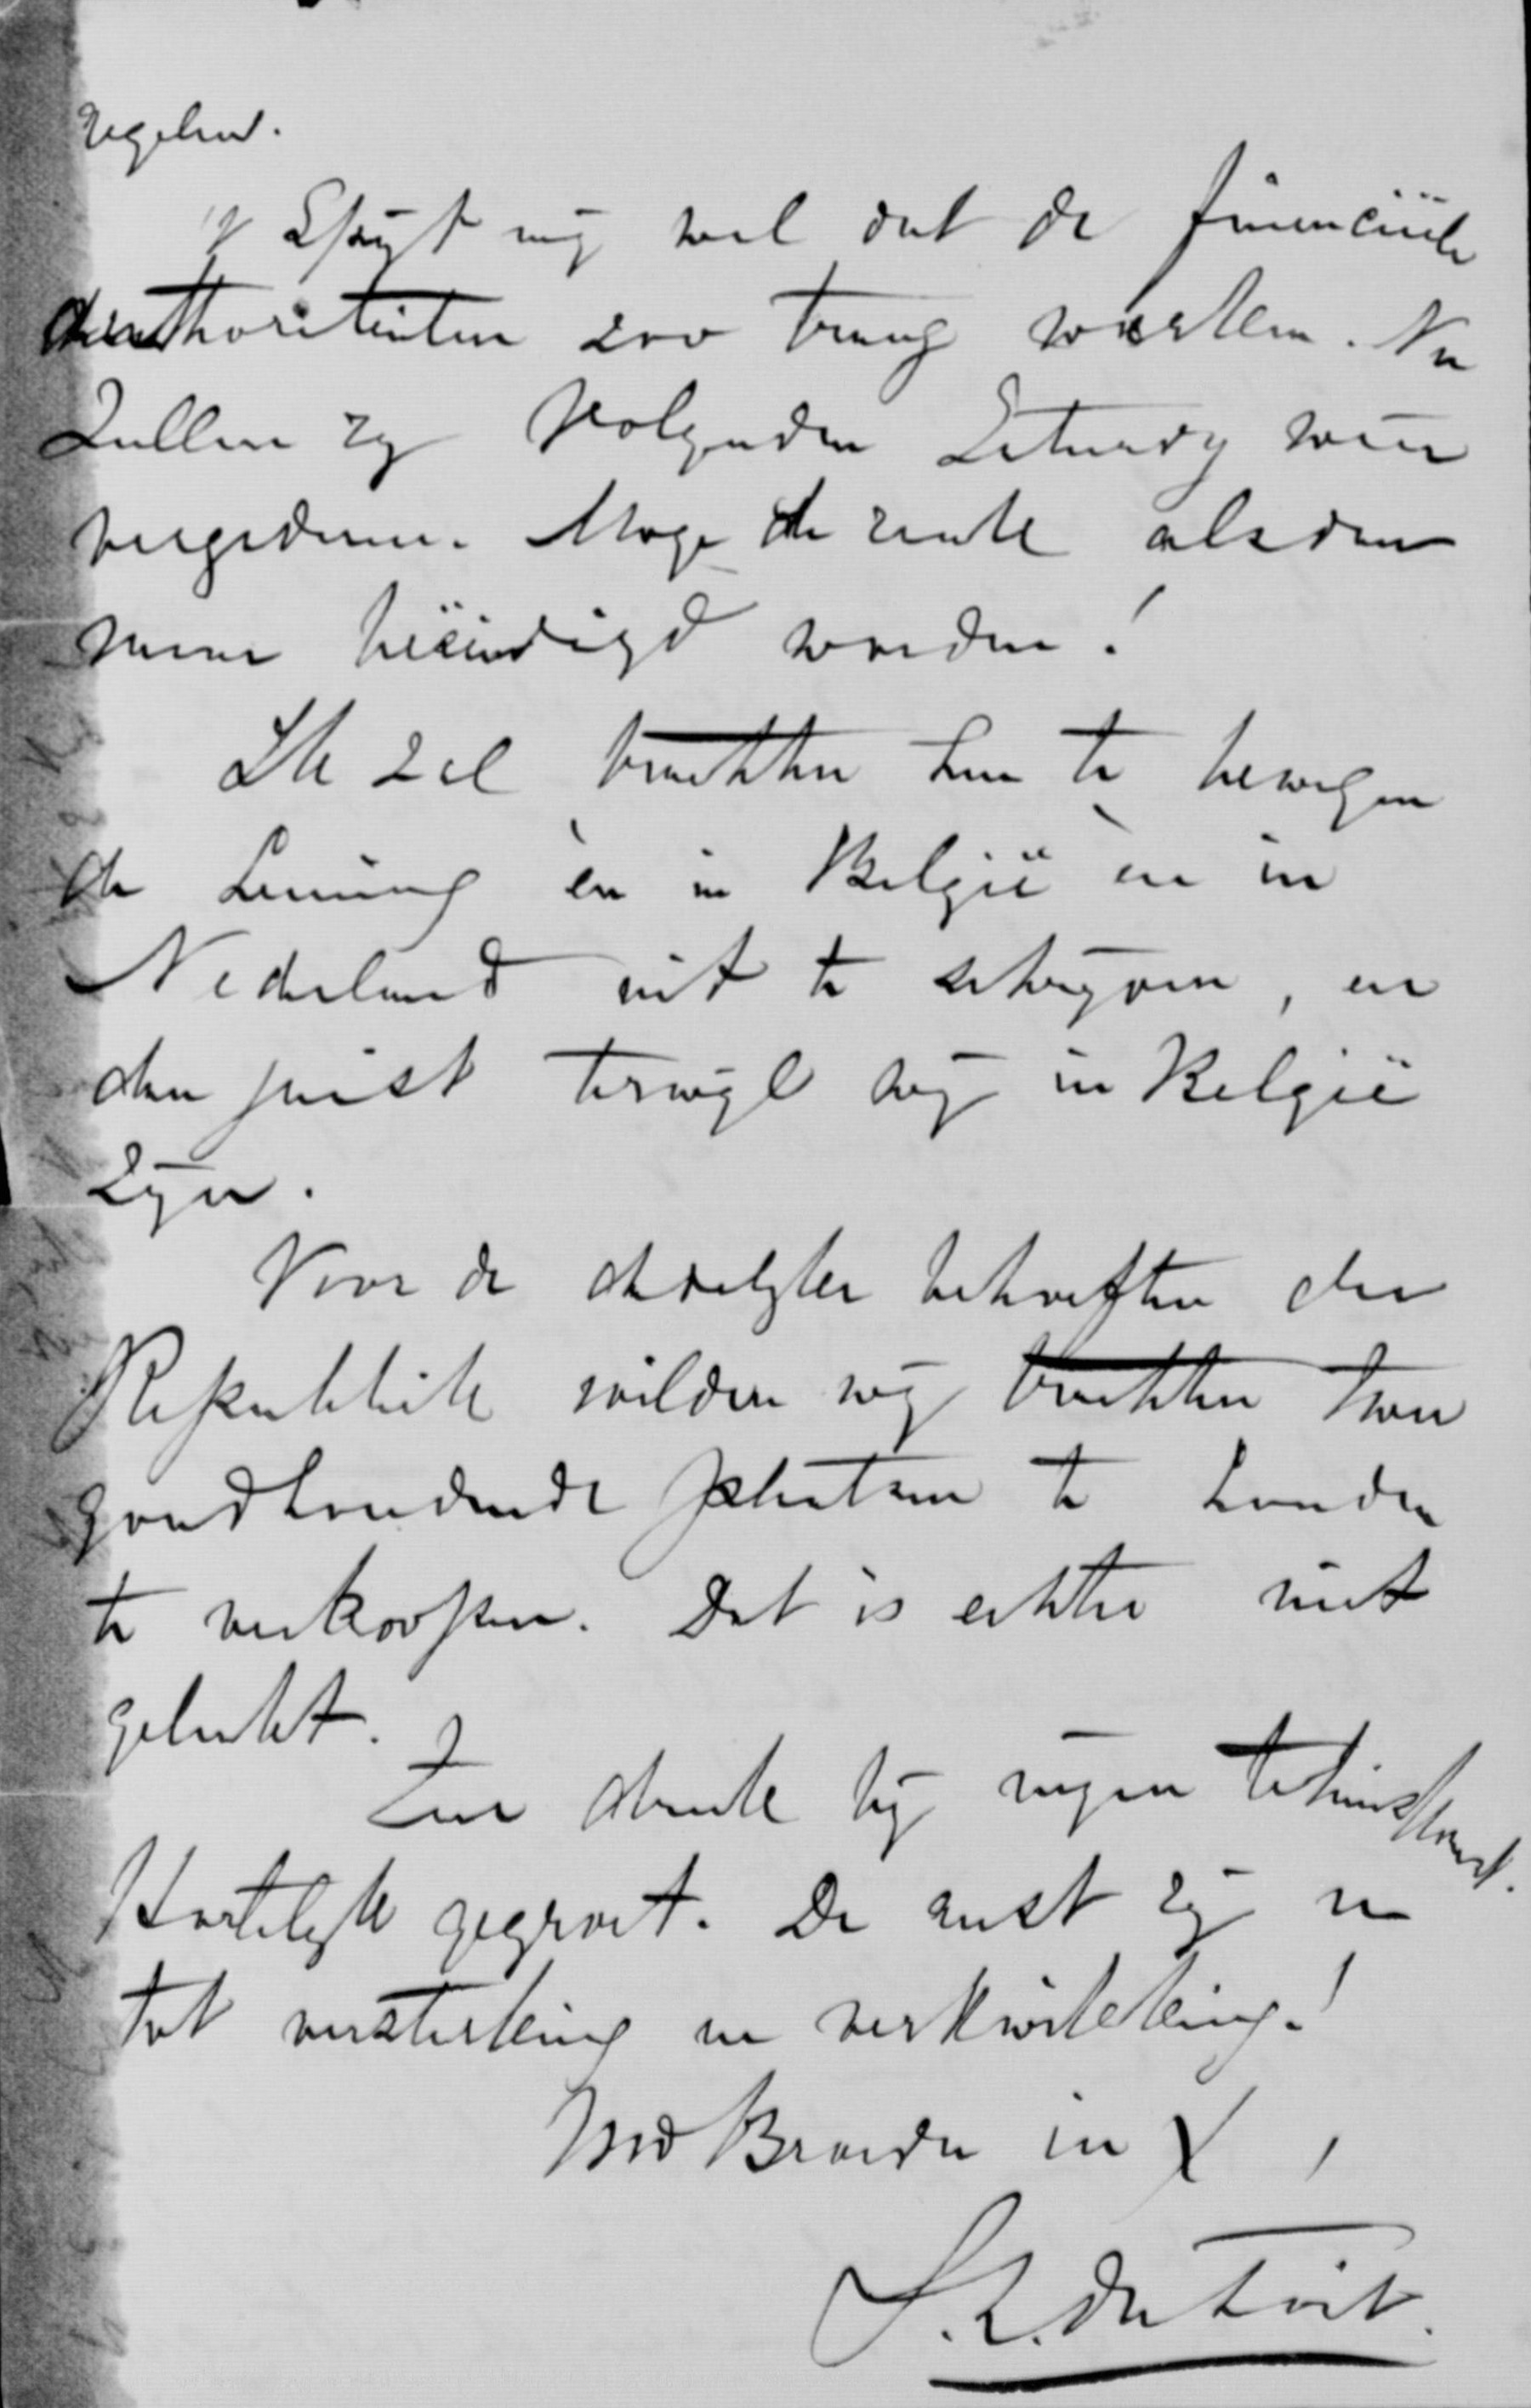 regelen.
't Spyt mij wel dat de financiëele
authoriteiten zoo traag werken. Nu
zullen zy volgenden Saturdag weer
vergaderen. Moge de zaak alsdan
maar beëindigd worden!
Ik zal trachten hen te bewegen
de Leening èn in België èn in
Nederland uit te schryven, en
dan juist terwijl wij in België
zyn.
Voor de dadelyke behoeften der
Republiek wilden wij trachten twee
goudhoudende plaatsen te Londen
te verkoopen. Dat is echter niet
gelukt.
Een drukte bij mijn tehuiskomst.
Hartelyk gegroet. De rust zij u
tot versterking en verkwikking!
Uw Broeder in X,
S. J. du Toit.